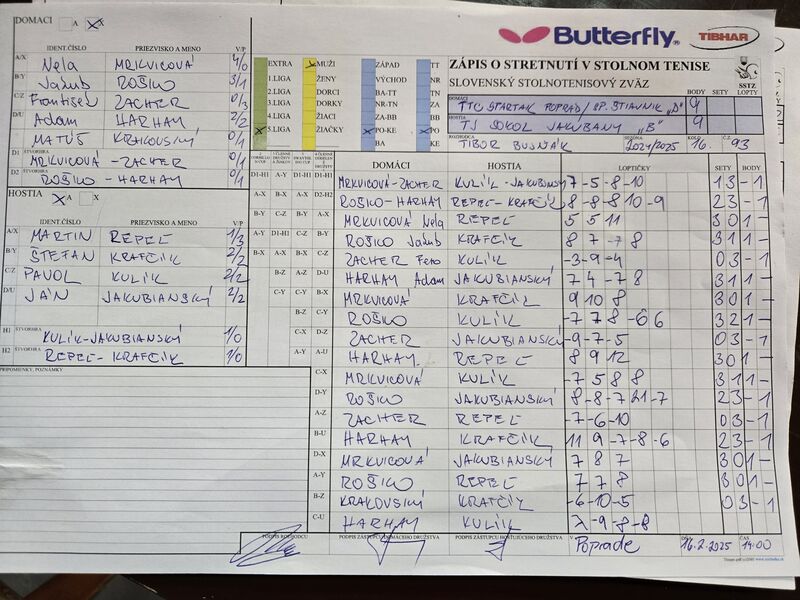 DOMÁCI A X
IDENT.ČÍSLO PRIEZVISKO A MENO V/P
A/X Nela MRKVICOVÁ 4/0
B/Y Jakub ROŠKO 3/1
C/Z František ZACHER 0/3
D/U Adam HARHAY 2/2
MATÚŠ KRAKOVSKÝ 0/1
D1 ŠTVORHRA MRKVICOVÁ - ZACHER 0/1
D2 ŠTVORHRA ROŠKO - HARHAY 0/1
HOSTIA X A X
IDENT.ČÍSLO PRIEZVISKO A MENO V/P
A/X MARTIN REPEL 1/3
B/Y ŠTEFAN KRAFČÍK 2/2
C/Z PAVOL KULÍK 2/2
D/U JÁN JAKUBIANSKÝ 2/2
H1 ŠTVORHRA KULÍK-JAKUBIANSKÝ 1/0
H2 ŠTVORHRA REPEL- KRAFČÍK 1/0
PRIPOMIENKY, POZNÁMKY
EXTRA MUŽI ZÁPAD TT
1.LIGA ŽENY VÝCHOD NR
2.LIGA DORCI BA-TT TN
3.LIGA DORKY NR-TN ZA
4.LIGA ŽIACI ZA-BB BB
5.LIGA ŽIAČKY PO-KE PO
BA KE
Butterfly TIBHAR
ZÁPIS O STRETNUTÍ V STOLNOM TENISE
SLOVENSKÝ STOLNOTENISOVÝ ZVÄZ SSTZ
DOMÁCI BODY LOPTY
TTC SPARTAK POPRAD/SP. ŠTIAVNIK "D" 9
HOSTIA
TJ SOKOL JAKUBANY "B" 9
ROZHODCA TIBOR BUSNÁK SEZÓNA 2024/2025 KOLO 16. Č. 93
DOMÁCI HOSTIA LOPTIČKY SETY BODY
D1-H1 A-Y D1-H1 D1-H1 MRKVICOVÁ-ZACHER KULÍK-JAKUBIANSKÝ 7 -5 -8 -10 1 3 - 1
A-X B-X A-X D2-H2 ROŠKO-HARHAY REPEL-KRAFČÍK 8 -8 -8 10 -9 2 3 - 1
B-Y C-Z B-Y A-X MRKVICOVÁ Nela REPEL 5 5 11 3 0 1 -
A-Y D1-H1 C-Z B-Y ROŠKO Jakub KRAFČÍK 8 7 -7 8 3 1 1 -
B-X A-X B-X C-Z ZACHER Fero KULÍK -3 -9 -4 0 3 - 1
B-Z A-Z D-U HARHAY Adam JAKUBIANSKÝ 7 4 -7 8 3 1 1 -
C-Y C-X A-Y MRKVICOVÁ KRAFČÍK 9 10 8 3 0 1 -
B-Z C-Y B-Z ROŠKO KULÍK -7 7 8 -6 6 3 2 1 -
C-X D-Z ZACHER JAKUBIANSKÝ -9 -7 -5 0 3 - 1
A-Y A-U HARHAY REPEL 8 9 12 3 0 1
C-X MRKVICOVÁ KULÍK -7 5 8 8 3 1 1 -
D-Y ROŠKO JAKUBIANSKÝ 8 -8 -7 21 -7 2 3 - 1
A-Z ZACHER REPEL -7 -6 -10 0 3 - 1
B-U HARHAY KRAFČÍK 11 9 -7 -8 -6 2 3 - 1
D-X MRKVICOVÁ JAKUBIANSKÝ 7 8 7 3 0 1 -
A-Y ROŠKO REPEL 7 7 8 3 0 1 -
B-Z KRAKOVSKÝ KRAFČÍK -6 -10 -5 0 3 - 1
C-U HARHAY KULÍK -9 -8 -8
PODPIS ROZHODCU PODPIS ZÁSTUPCU DOMÁCEHO DRUŽSTVA PODPIS ZÁSTUPCU HOSŤUJÚCEHO DRUŽSTVA V Poprade DŇA 16.2.2025 ČAS 14:00